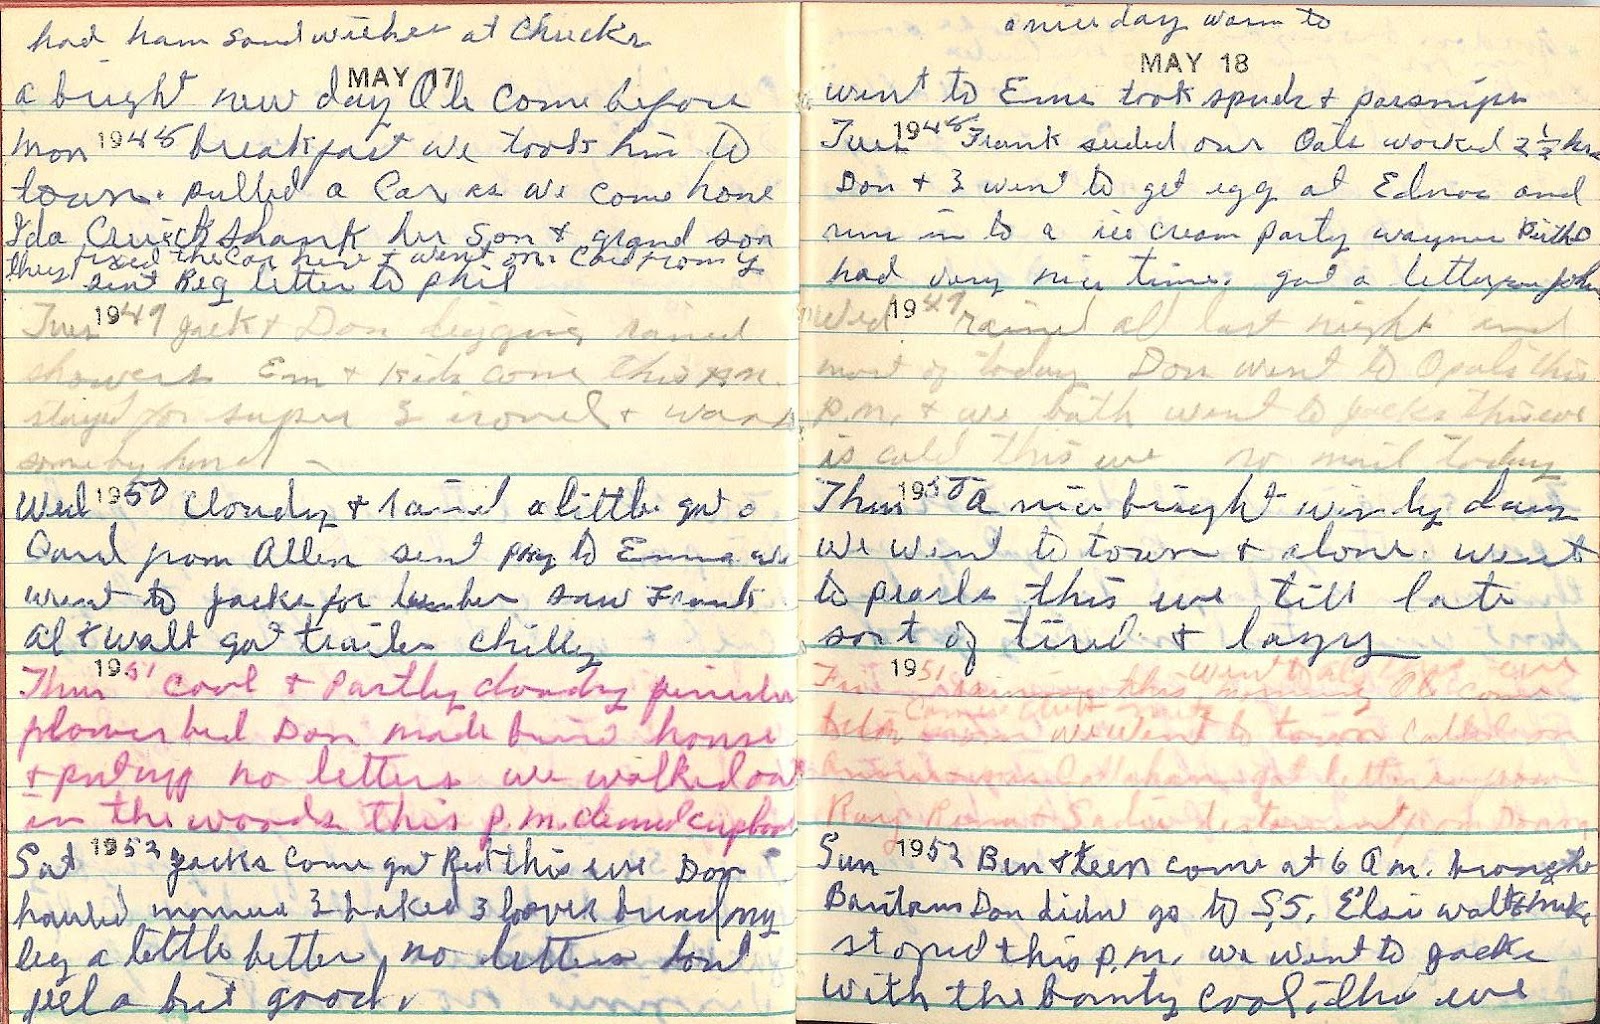 had ham sandwiches at Chucks
MAY 17
a bright new day Ole come before
Mon 1948 breakfast we took him to
town. pulled a Car as we come home
Ida Cruickshank her son & grand son
they fixed the car here & went on. Card from
sent Reg letter to Phil
Tues 1949 Jack & Don logging rained
showers Em & Kids come this P.M.
stayed for supper I ironed & wash
some by hand
Wed 1950 Cloudy & rained a little got a
Card from Allen sent pkg to Emma we
went to Jacks for lumber saw Frank
Al & Walt got trailer chilly
Thur 1951 Cool & Partly cloudy
flower bed Don made bird house
& put up no letters we walked out
in the woods this P.M. cleaned cupboard
Sat 1952 Jacks come got Red this eve Don
hauled I baked 3 loaves bread my
leg a little better no letters dont
feel a bit good.
a nice day warm to
MAY 18
went to Ems took spuds & parsnips
Tues 1948 Frank seeded our Oats worked 2 1/2 hrs
Don & I went to get egg at Ednas and
run in to a ice cream party Birthd
had very nice time. got a letter from John
Wed 1949 rained all last night and
most of today Don went to Opals this
P.M. & we both went to Jacks this eve
is cold this eve no mail today
Thur 1950 A nice bright windy day
we went to town & alone. went
to pearls this eve till late
sort of tired & lazy
Fri 1951 raining this morning Ole come
we went to town Called on
got letters from
Ray & Sadie from
Sun 1952 Ben & Teen come at 6 A.M. brought
Bantams Don didnt go to S,S, Elsie Walt & mike
stoped this P.M. we went to Jacks
with the banty cool this eve